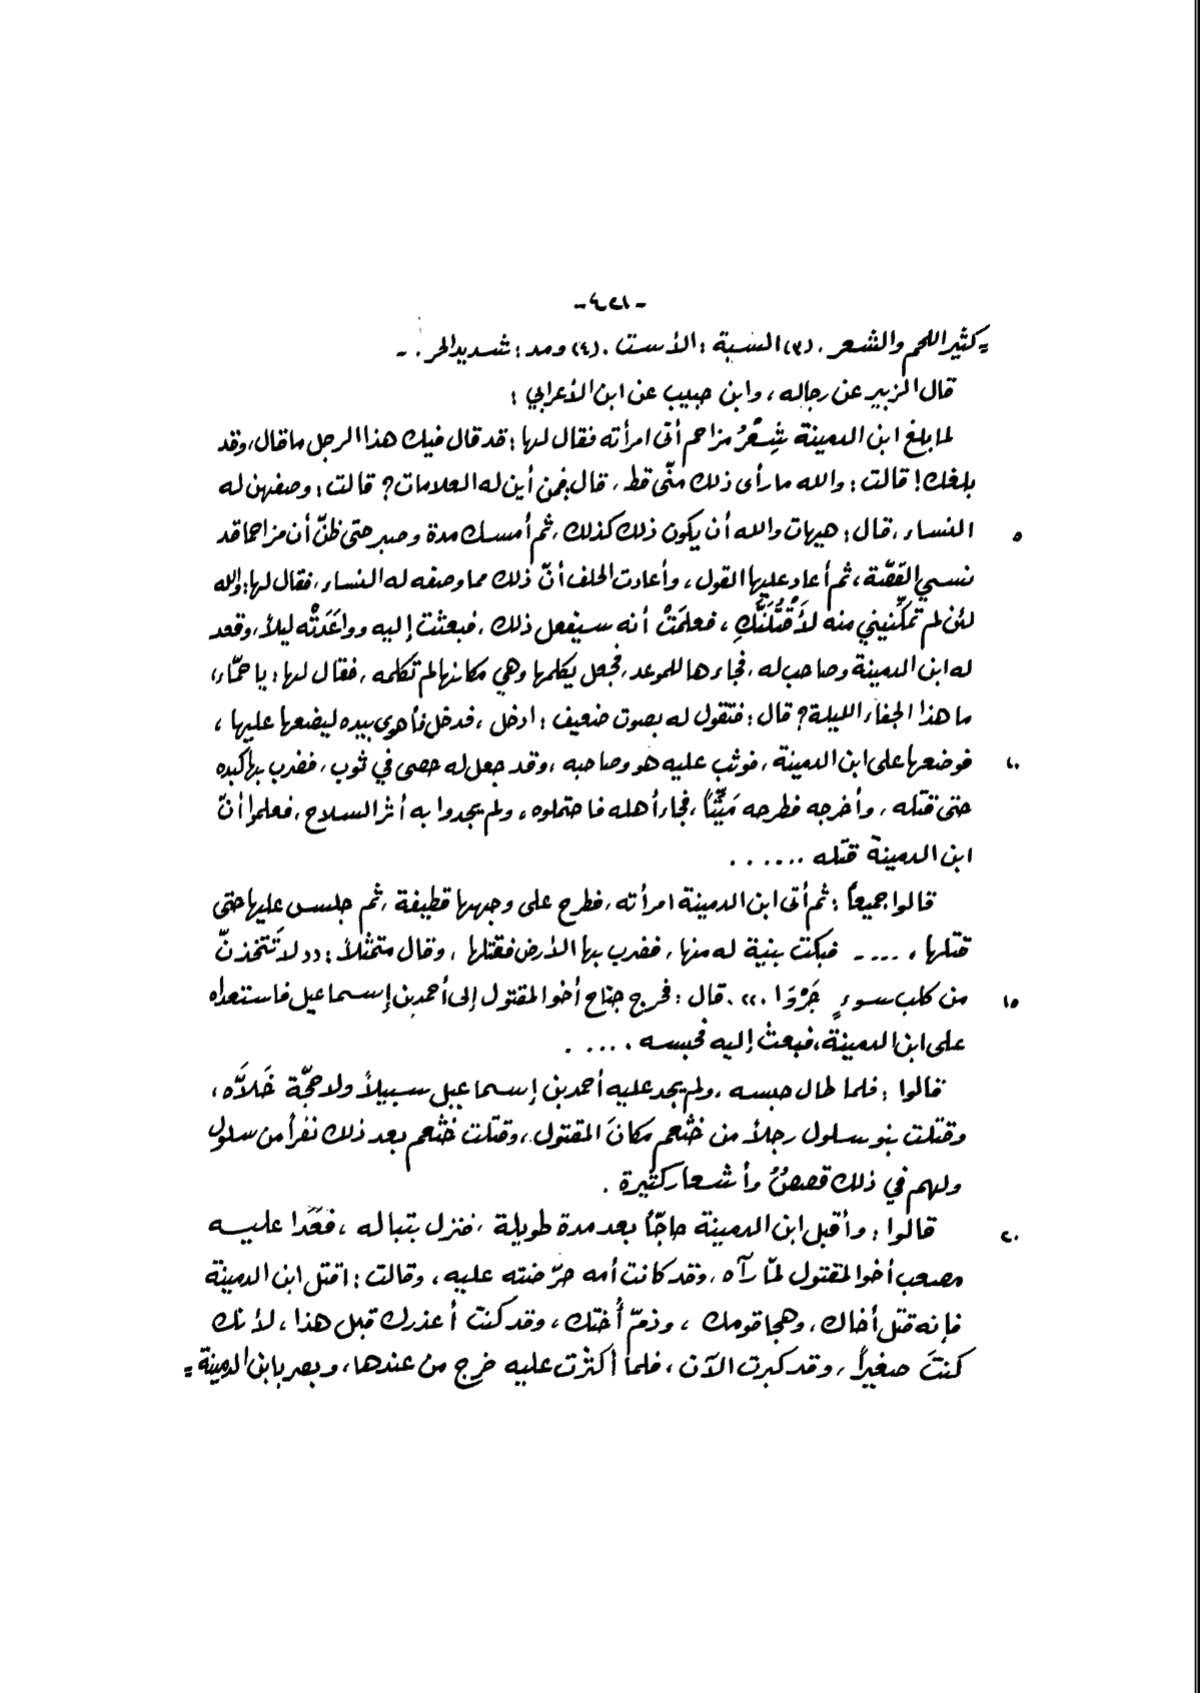 -٤٢١-
= كثير اللحم والشعر . (٣) السَّبة : الأست . (٤) ومد : شديد الحر . -
قال الزبير عن رجاله ، وابن حبيب عن ابن الأعرابي :
لما بلغ ابن الدمينة شِعْرُ مزاحم أتى امرأته فقال لها : قد قال فيك هذا الرجل ما قال ، وقد
بلغك ! قالت : والله ما رأى ذلك منّي قط ، قال : فمن أين له العلامات ؟ قالت : وصفهن له
٥ النساء ، قال : هيهات والله أن يكون ذلك كذلك ، ثم أمسك مدة وصبر حتى ظنّ أن مزاحما قد
نسي القصّة ، ثم أعاد عليها القول ، وأعادت الحلف أنّ ذلك مما وصفه له النساء ، فقال لها : والله
لئن لم تمكّنيني منه لأَقْتُلَنَّكِ ، فعلمَتْ أنه سيفعل ذلك ، فبعثت إليه وواعَدَتْه ليلاً ، وقعد
له ابن الدمينة وصاحب له ، فجاءها للموعد ، فجعل يكلمها وهي مكانها لم تكلمه ، فقال لها : يا حمّاء ،
ما هذا الجفاء الليلة ؟ قال : فتقول له بصوت ضعيف : ادخل ، فدخل فأهوى بيده ليضعها عليها ،
١٠ فوضعها على ابن الدمينة ، فوثب عليه هو وصاحبه ، وقد جعل له حصى في ثوب ، فضرب بها كبده
حتى قتله ، وأخرجه فطرحه مَيِّتاً ، فجاء أهله فاحتملوه ، ولم يجدوا به أثر السلاح ، فعلموا أنّ
ابن الدمينة قتله ......
قالوا جميعاً : ثم أتى ابن الدمينة امرأته ، فطرح على وجهها قطيفة ، ثم جلس عليها حتى
قتلها ، .... فبكت بنية له منها ، فضرب بها الأرض فقتلها ، وقال متمثلاً : (( لا تَتَّخذنّ
١٥ من كلب سوءٍ جَرْوَا . )) . قال : فخرج جناح أخو المقتول إلى أحمد بن إسماعيل فاستعداه
على ابن الدمينة ، فبعث إليه فحبسه .....
قالوا : فلما طال حبسه ، ولم يجد عليه أحمد بن إسماعيل سبيلاً ولا حجّة خَلاَّه ،
وقتلت بنو سلول رجلاً من خثعم مكانَ المقتول ، وقتلت خثعم بعد ذلك نفراً من سلول
ولهم في ذلك قصصٌ وأشعار كثيرة .
٢٠ قالوا : وأقبل ابن الدمينة حاجّاً بعد مدة طويلة ، فنزل بتبالة ، فعَدَا عليه
مصعب أخو المقتول لمّا رآه ، وقد كانت أمه حرّضته عليه ، وقالت : اقتل ابن الدمينة
فإنه قتل أخاك ، وهجا قومك ، وذمّ أُختك ، وقد كنت أعذرك قبل هذا ، لأنك
كنتَ صغيراً ، وقد كبرت الآن ، فلما أكثرت عليه خرج من عندها ، وبصر بابن الدمينة =